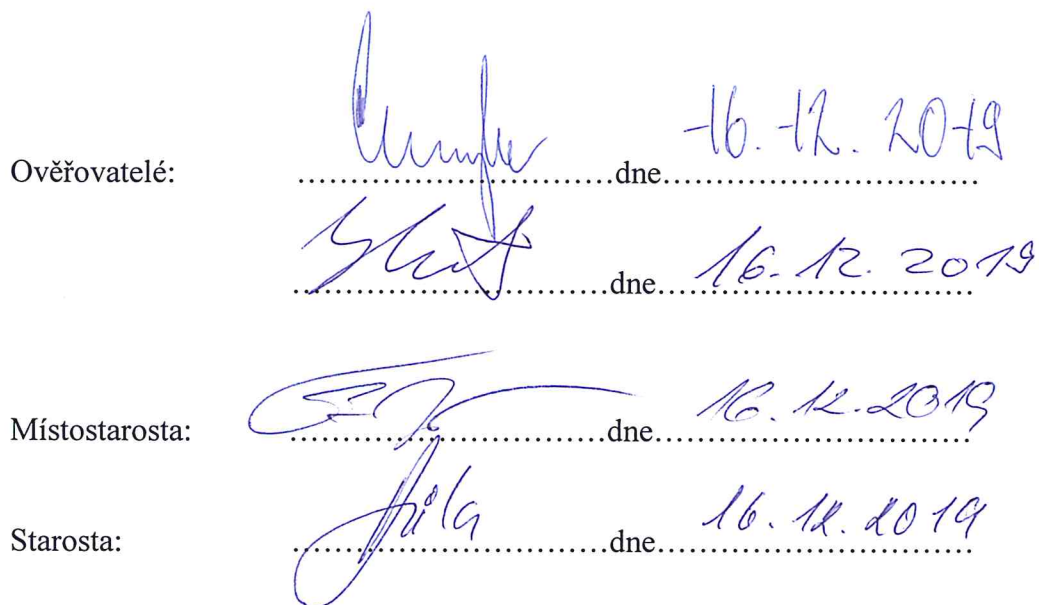 Ověřovatelé: ........................................dne........................................ 16. 12. 2019
........................................dne........................................ 16. 12. 2019
Místostarosta: ........................................dne........................................ 16. 12. 2019
Starosta: ........................................dne........................................ 16. 12. 2019